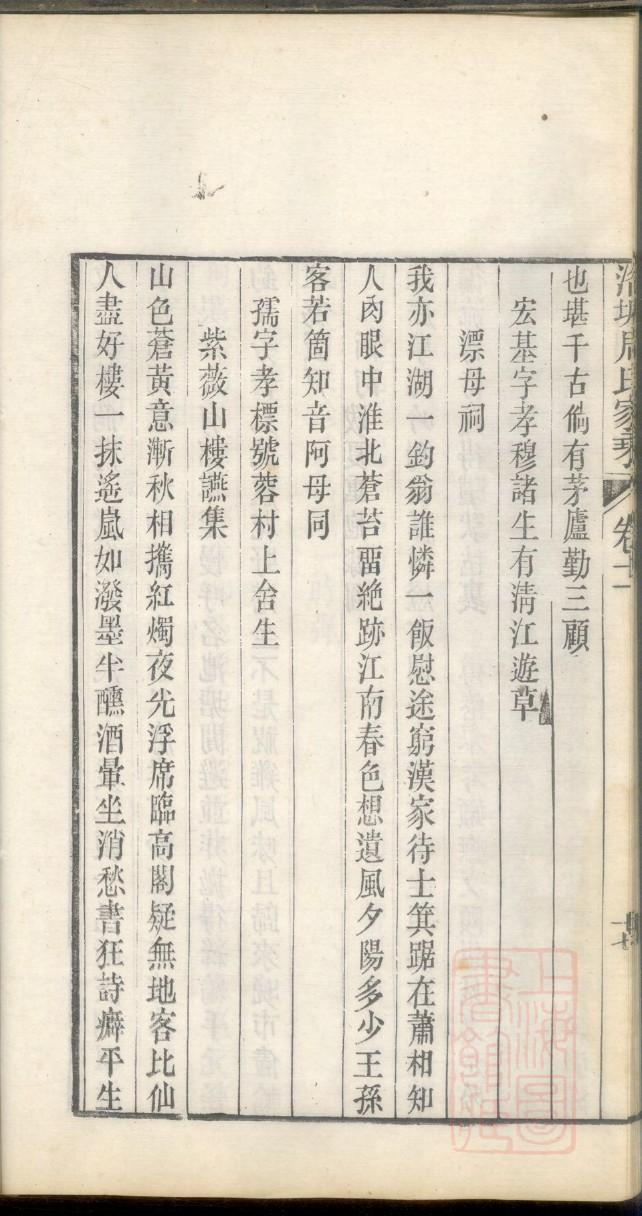 周氏家乘
卷十一
也堪千古倘有茅廬勤三顧
宏基字孝穆諸生有淸江遊草
漂母祠
我亦江湖一釣翁誰憐一飯慰途窮漢家待士箕踞在蕭相知
人肉眼中淮北蒼苔畱絶跡江南春色想遺風夕陽多少王孫
客若箇知音阿母同
孺字孝標號蓉村上舍生
紫薇山樓讌集
山色蒼黃意漸秋相攜紅燭夜光浮席臨高閣疑無地客比仙
人盡好樓一抹遙嵐如潑墨半醺酒暈坐消愁書狂詩癖平生
上海圖書館藏